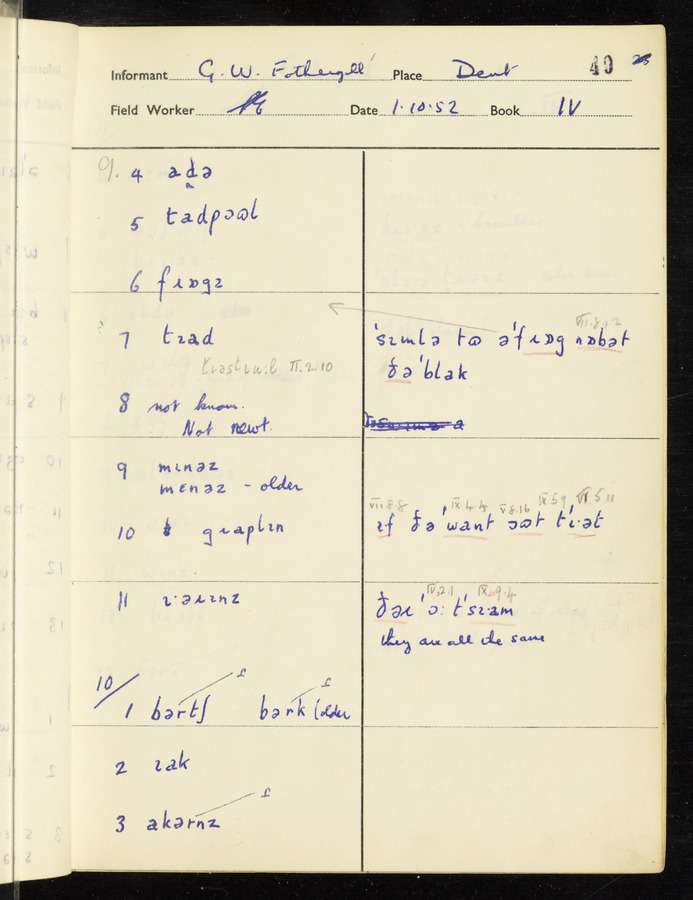 Informant G. W. Fothergill Place Dent 40
Field Worker Date 1.10.52 Book IV
9. 4 adə
5 tadpɔɷl
6 fɹɒgz
7 tɪad
tɹəstɹuːl II.2.10
8 not known.
Not newt.
9 mɪnəz
mɛnəz - older
10 gɹaplɪn
11 ɪ·əɹɪnz
VII.8.2
ˈsɪmlə tɷ əˈfɹɒg nɒbət
ðəˈblak
VII 8.8 IX 4.4 V 8.16 IX 5 9 VI 5 11
ɪf ðəˈwant ɔɷt tɪ·ət
IV.2.1 IX.9.4
ðəɪ ˈɔː tˈsɪam
they are all the same
10/
1 bərtʃ bərk (older
2 ɪak
3 akərnz